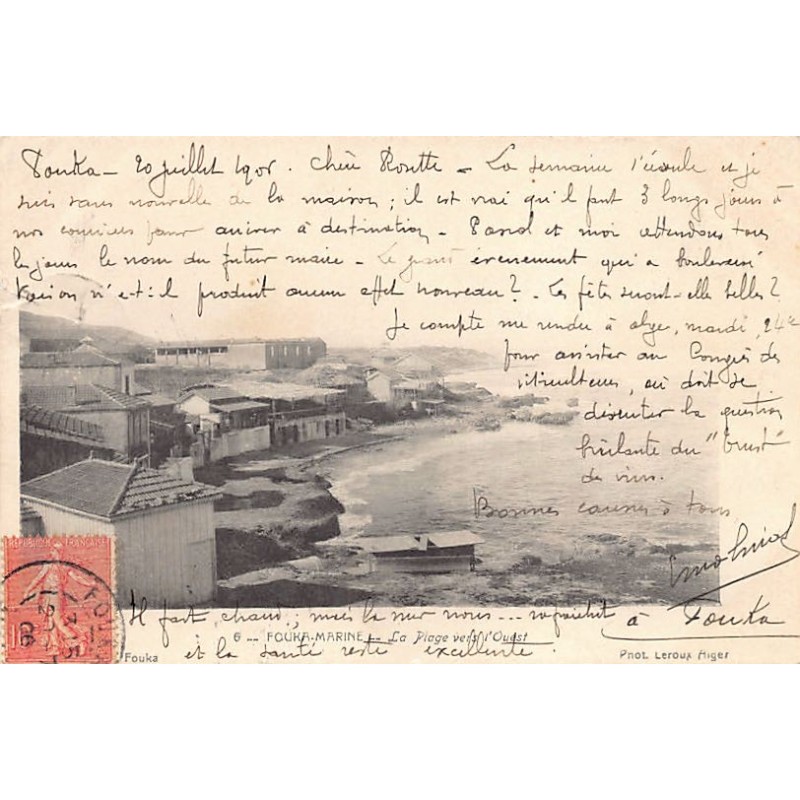 Fouka - 20 juillet 1905. Chère Rosette - La semaine s'écoule et je
suis sans nouvelle de la maison ; il est vrai qu'il faut 3 longs jours à
nos courriers pour arriver à destination - et moi attendons tous
les jours le nom du futur maire - Le grand évènement qui a bouleversé
n'a-t-il produit aucun effet nouveau ? - Les fêtes seront-elle belles ?
Je compte me rendre à Alger, mardi, 24 ct
pour assister au Congrès des
viticulteurs, où doit se
discuter la question
brûlante du "trust"
de vins.
Bonnes causes à tous
à Fouka
Il fait chaud ; mais la mer nous ... rafraichit
6 -- FOUKA-MARINE -- La Plage vers l'Ouest
et la santé reste excellente.
Fouka
Phot. Leroux Alger
FOUKA